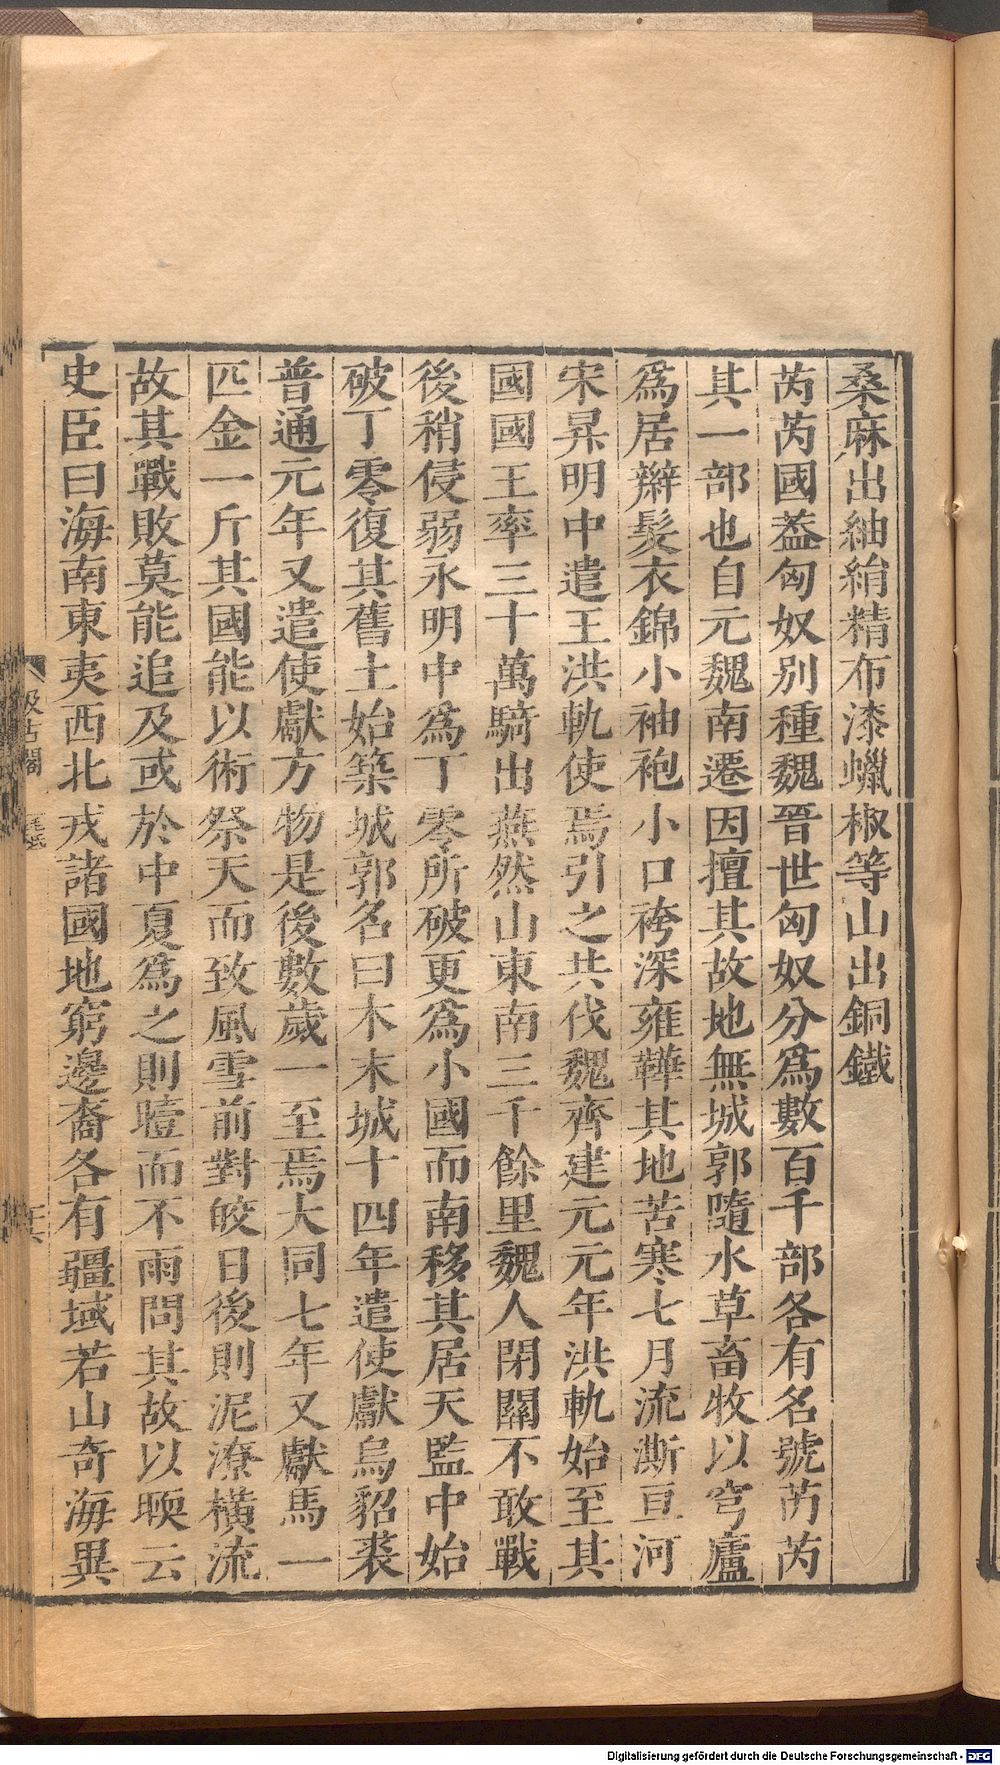 桑麻出紬絹精布漆蠟椒等山出銅鐵
芮芮國葢匈奴別種魏晉世匈奴分爲數百千部各有名號芮芮
其一部也自元魏南遷因擅其故地無城郭隨水草畜牧以穹廬
爲居辮髮衣錦小袖袍小口袴深雍鞾其地苦寒七月流澌亘河
宋昇明中遣王洪軌使焉引之共伐魏齊建元元年洪軌始至其
國國王率三十萬騎出燕然山東南三千餘里魏人閉關不敢戰
後稍侵弱永明中爲丁零所破更爲小國而南移其居天監中始
破丁零復其舊土始築城郭名曰木末城十四年遣使獻烏貂裘
普通元年又遣使獻方物是後數歲一至焉大同七年又獻馬一
匹金一斤其國能以術祭天而致風雪前對皎日後則泥潦橫流
故其戰敗莫能追及或於中夏爲之則曀而不雨問其故以暖云
史臣曰海南東夷西北戎諸國地窮邊裔各有疆域若山奇海異
汲古閣 毛氏
Digitalisierung gefördert durch die Deutsche Forschungsgemeinschaft - DFG